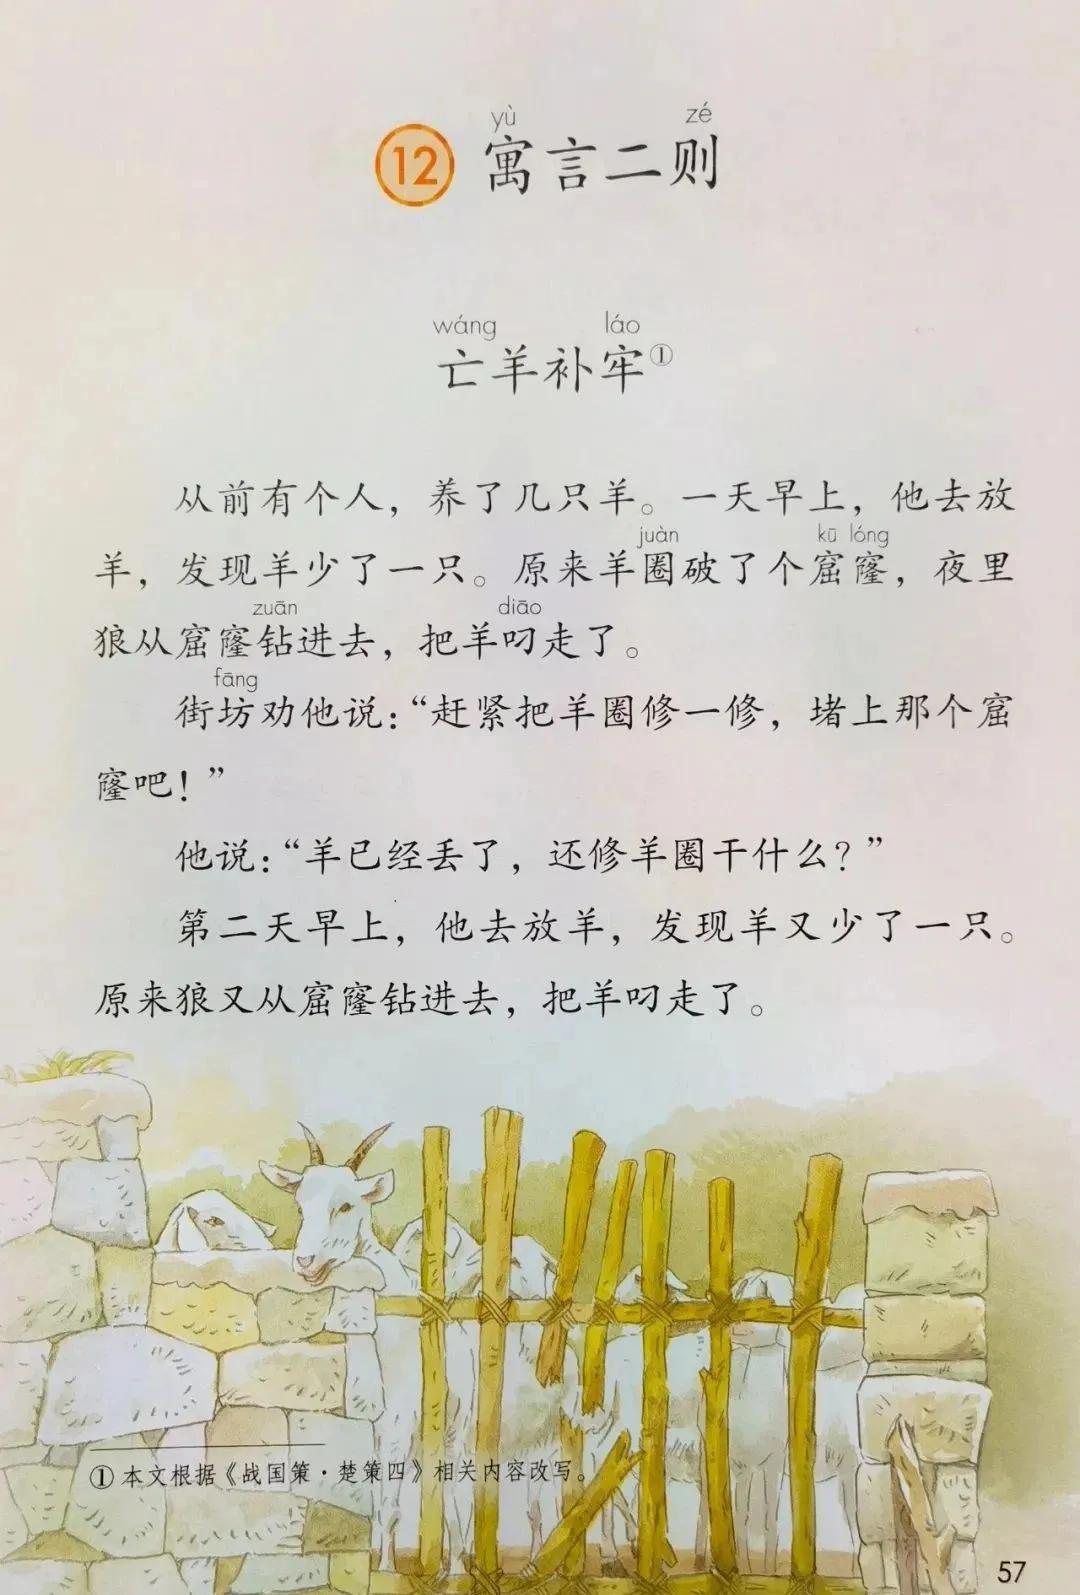 yù zé
12 寓言二则
wáng láo
亡羊补牢①
从前有个人，养了几只羊。一天早上，他去放
juàn kū lóng
羊，发现羊少了一只。原来羊圈破了个窟窿，夜里
zuān diāo
狼从窟窿钻进去，把羊叼走了。
fāng
街坊劝他说：“赶紧把羊圈修一修，堵上那个窟
窿吧！”
他说：“羊已经丢了，还修羊圈干什么？”
第二天早上，他去放羊，发现羊又少了一只。
原来狼又从窟窿钻进去，把羊叼走了。
①本文根据《战国策·楚策四》相关内容改写。
57